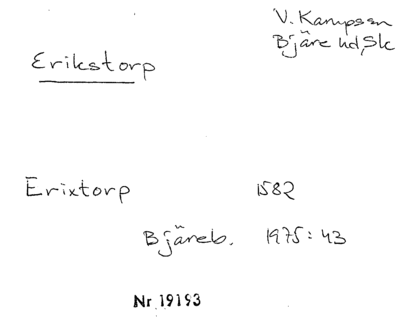 V. Karupssn
Bjäre hd, Sk
Erikstorp
Erixtorp 1582
Bjäreb. 1975: 43
Nr 19193